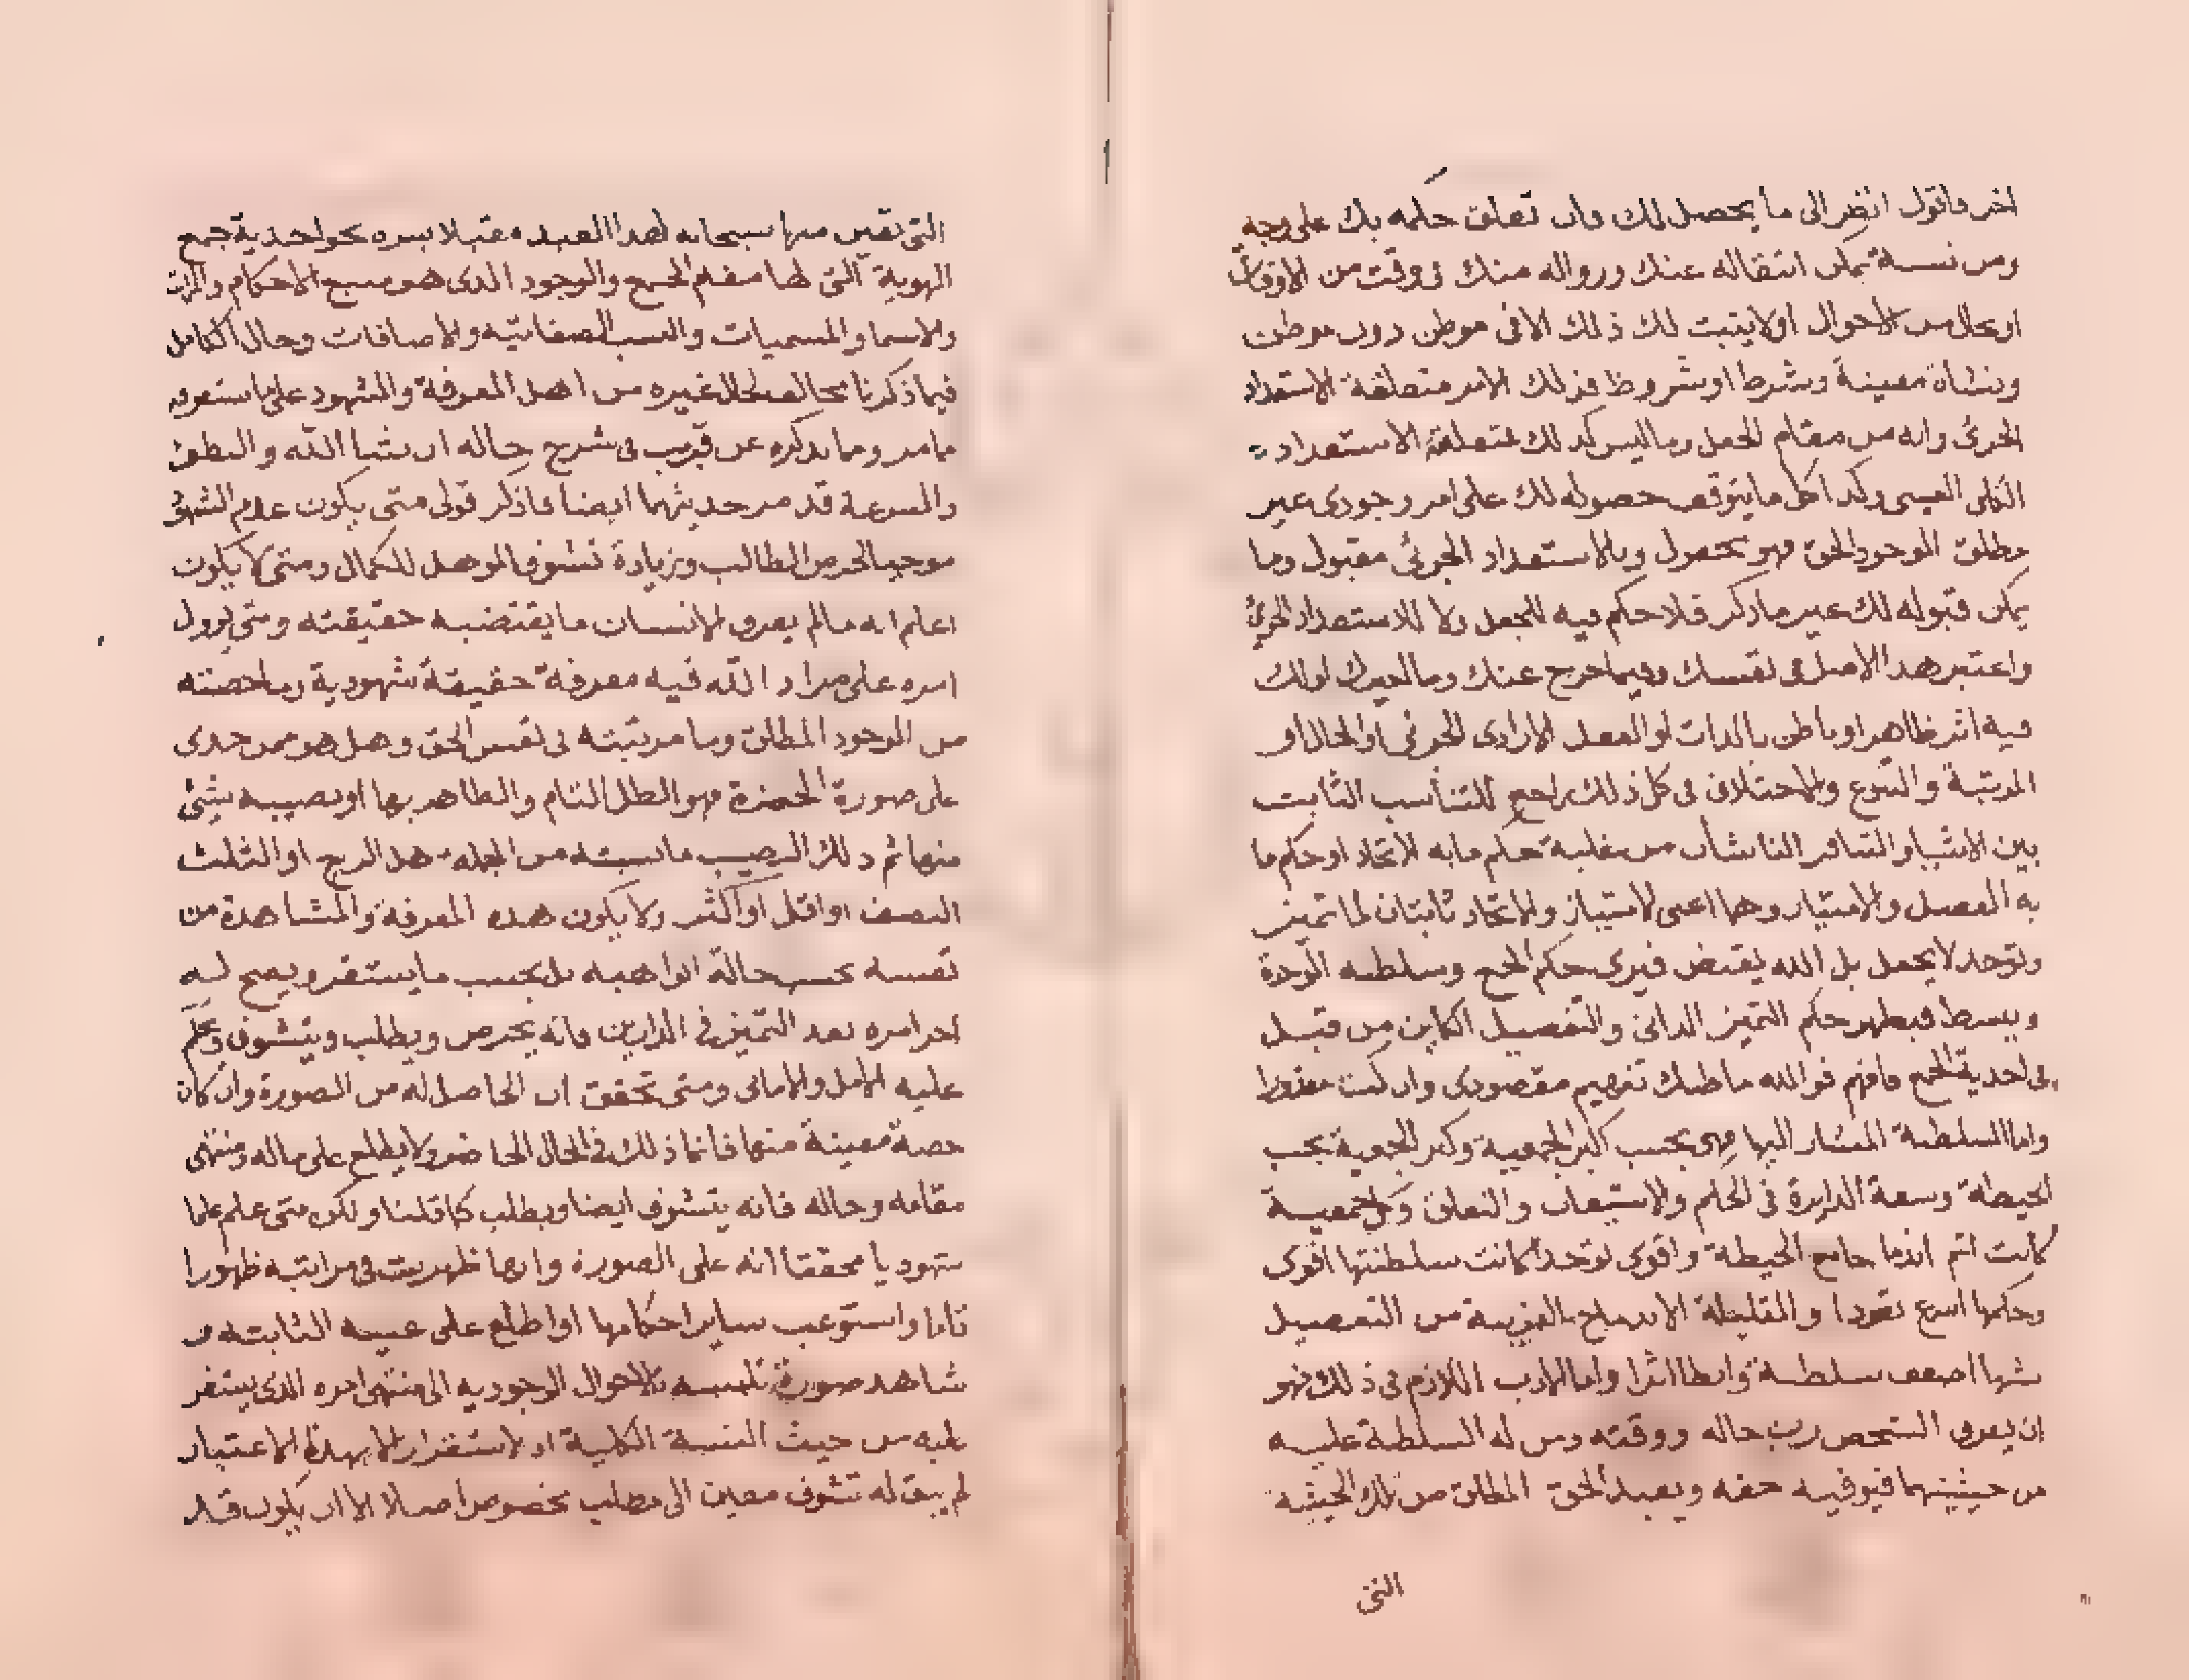 اخر فاقول انظر الى ما يحصل لك فان تعلق حكمه بك على وجه
ومن نسبة يمكن انتقاله عنك وزواله منك في وقت من الاوقات
او بحال من الاحوال اولا يثبت لك ذلك الا في موطن دون موطن
ونشاة معينة وبشرط او شروط فذلك الامر متعلقه الاستعداد
الجزئى وانه من مقام الجعل وما ليس كذلك فمتعلقه الاستعداد
الكلى الغيبى وكذا كل ما يتوقف حصوله لك على امر وجودى غير
مطلق الوجود الحق فهو مجعول وبالاستعداد الجزئى مقبول وما
يمكن قبوله لك غير ما ذكر فلا حكم فيه للجعل ولا للاستعداد الجزئى
واعتبر هذا الاصل فى نفسك وفيما خرج عنك وما لغيرك او لك
فيه اثر ظاهر او باطن بالذات او الفعل الارادى الجزئى او الحال او
المرتبة والتنوع والاختلاف فى كل ذلك راجع للتناسب الثابت
بين الاشيا والتنافر الناشئان من غلبة حكم ما به الاتحاد او حكم ما
به الفصل والامتياز وهما اعنى الامتياز والاتحاد ثابتان لما تميز
وتوحد لا بجعل بل الله يقبض فيرى حكم الجمع وسلطنه الوحدة
ويبسط فيظهر حكم التميز الذاتى والتفصيل الكاين من قبل
فى احدية الجمع فافهم فوالله ما اظنك تفهيم مقصودى وان كنت معذورا
واما السلطنة المشار اليها فهى بحسب كبر الجمعية وكبر الجمعية بحسب
الحيطة وسعة الدايرة فى الحكم والاستيعاب والتعلق وكل جمعية
كانت اتم اندماجا مع الحيطة واقوى توحدا كانت سلطنتها اقوى
وحكمها اسرع نفوذا والقليلة الاندماج القريبة من التفصيل
شها اضعف سلطنة وابطا اثرا واما الادب اللازم فى ذلك فهو
ان يعرف الشخص رب حاله ووقته ومن له السلطنة عليه
من حيثيتهما فيوفيه حقه ويعبد الحق المطلق من تلك الحيثية
التى
التى تعين منها سبحانه لهذا العبد مقبلا بسره نحو احدية جمع
الهوية التى لها مقام الجمع والوجود الذى هو منبع الاحكام والاثار
والاسما والمسميات والنسب الصفاتيه والاضافات وحال الكامل
فيما ذكرنا مخالف لحال غيره من اهل المعرفة والشهود على ما ستعرفه
مما مر ومما نذكره عن قريب فى شرح حاله ان شا الله والبطئ
والسرعة قد مر حديثهما ايضا فاذكر قولى متى يكون علم الشئ
موجبا لحرص الطالب وزيادة تشوف الموصل للكمال ومتى لا يكون
اعلم انه ما لم يعرف الانسان ما يقتضيه حقيقته ومتى يوول
امره على مراد الله فيه معرفة حقيقة شهودية وما حصته
من الوجود المطلق وما مرتبته فى نفس الحق وهل هو ممن حذى
على صورة الحضرة فهو الظل التام والظاهر بها او نصيبه شئ
منها ثم ذلك النصيب ما نسبته من الجملة هل الربع او الثلث
النصف او اقل او اكثر ولا يكون هذه المعرفة والمشاهدة من
نفسه بحسب حالة الواهبه بل بحسب ما يستقر ويصح ليه
اخر امره بعد التميز فى الدارين فانه يحرص ويطلب ويتشوف وتحكم
عليه الامل والامانى ومتى تحقق ان الحاصل له من الصورة وان كان
حصة معينة منها فانما ذلك فى الحال الحاضر ولا يطلع على ماله ومنتهى
مقامه وحاله فانه يتشوف ايضا ويطلب كما قلنا ولكن متى علم علما
شهوديا محققا انه على الصورة وانها ظهرت فى مراتبه ظهورا
تاما واستوعب ساير احكامها او اطلع على عينه الثابته و
شاهد صورة تلبسه بالاحوال الوجوديه الى منتهى امره الذى يستقر
عليه من حيث النسبة الكلية اذ لا استقرار الا بهذا الاعتبار
لم يبق له تشوف معين الى مطلب مخصوص اصلا الا ان يكون قد